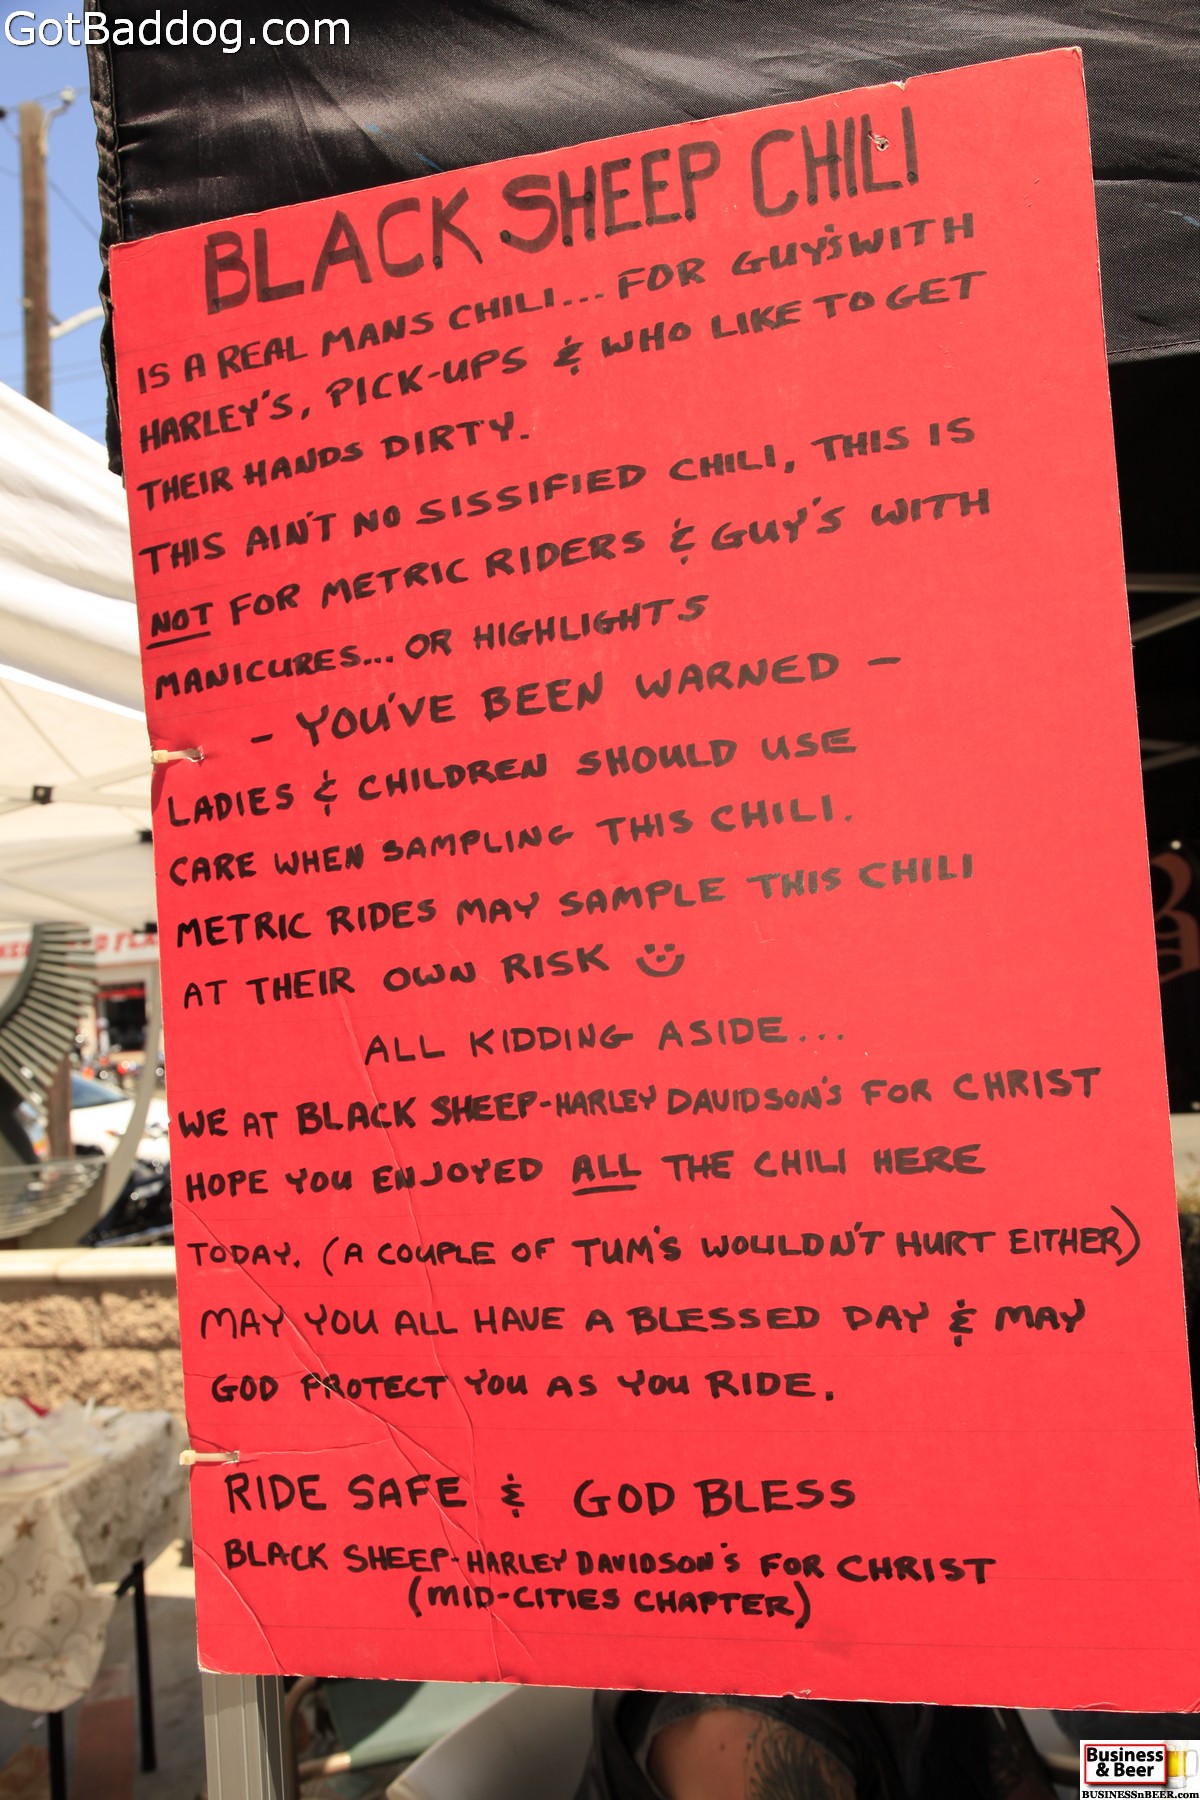 GotBaddog.com
BLACK SHEEP CHILI
IS A REAL MANS CHILI... FOR GUY'S WITH
HARLEY'S, PICK-UPS & WHO LIKE TO GET
THEIR HANDS DIRTY.
THIS AIN'T NO SISSIFIED CHILI, THIS IS
NOT FOR METRIC RIDERS & GUY'S WITH
MANICURES... OR HIGHLIGHTS
- YOU'VE BEEN WARNED -
LADIES & CHILDREN SHOULD USE
CARE WHEN SAMPLING THIS CHILI.
METRIC RIDES MAY SAMPLE THIS CHILI
AT THEIR OWN RISK
ALL KIDDING ASIDE...
WE AT BLACK SHEEP-HARLEY DAVIDSON'S FOR CHRIST
HOPE YOU ENJOYED ALL THE CHILI HERE
TODAY. (A COUPLE OF TUM'S WOULDN'T HURT EITHER)
MAY YOU ALL HAVE A BLESSED DAY & MAY
GOD PROTECT YOU AS YOU RIDE.
RIDE SAFE & GOD BLESS
BLACK SHEEP-HARLEY DAVIDSON'S FOR CHRIST
(MID-CITIES CHAPTER)
Business
& Beer
BUSINESSnBEER.com